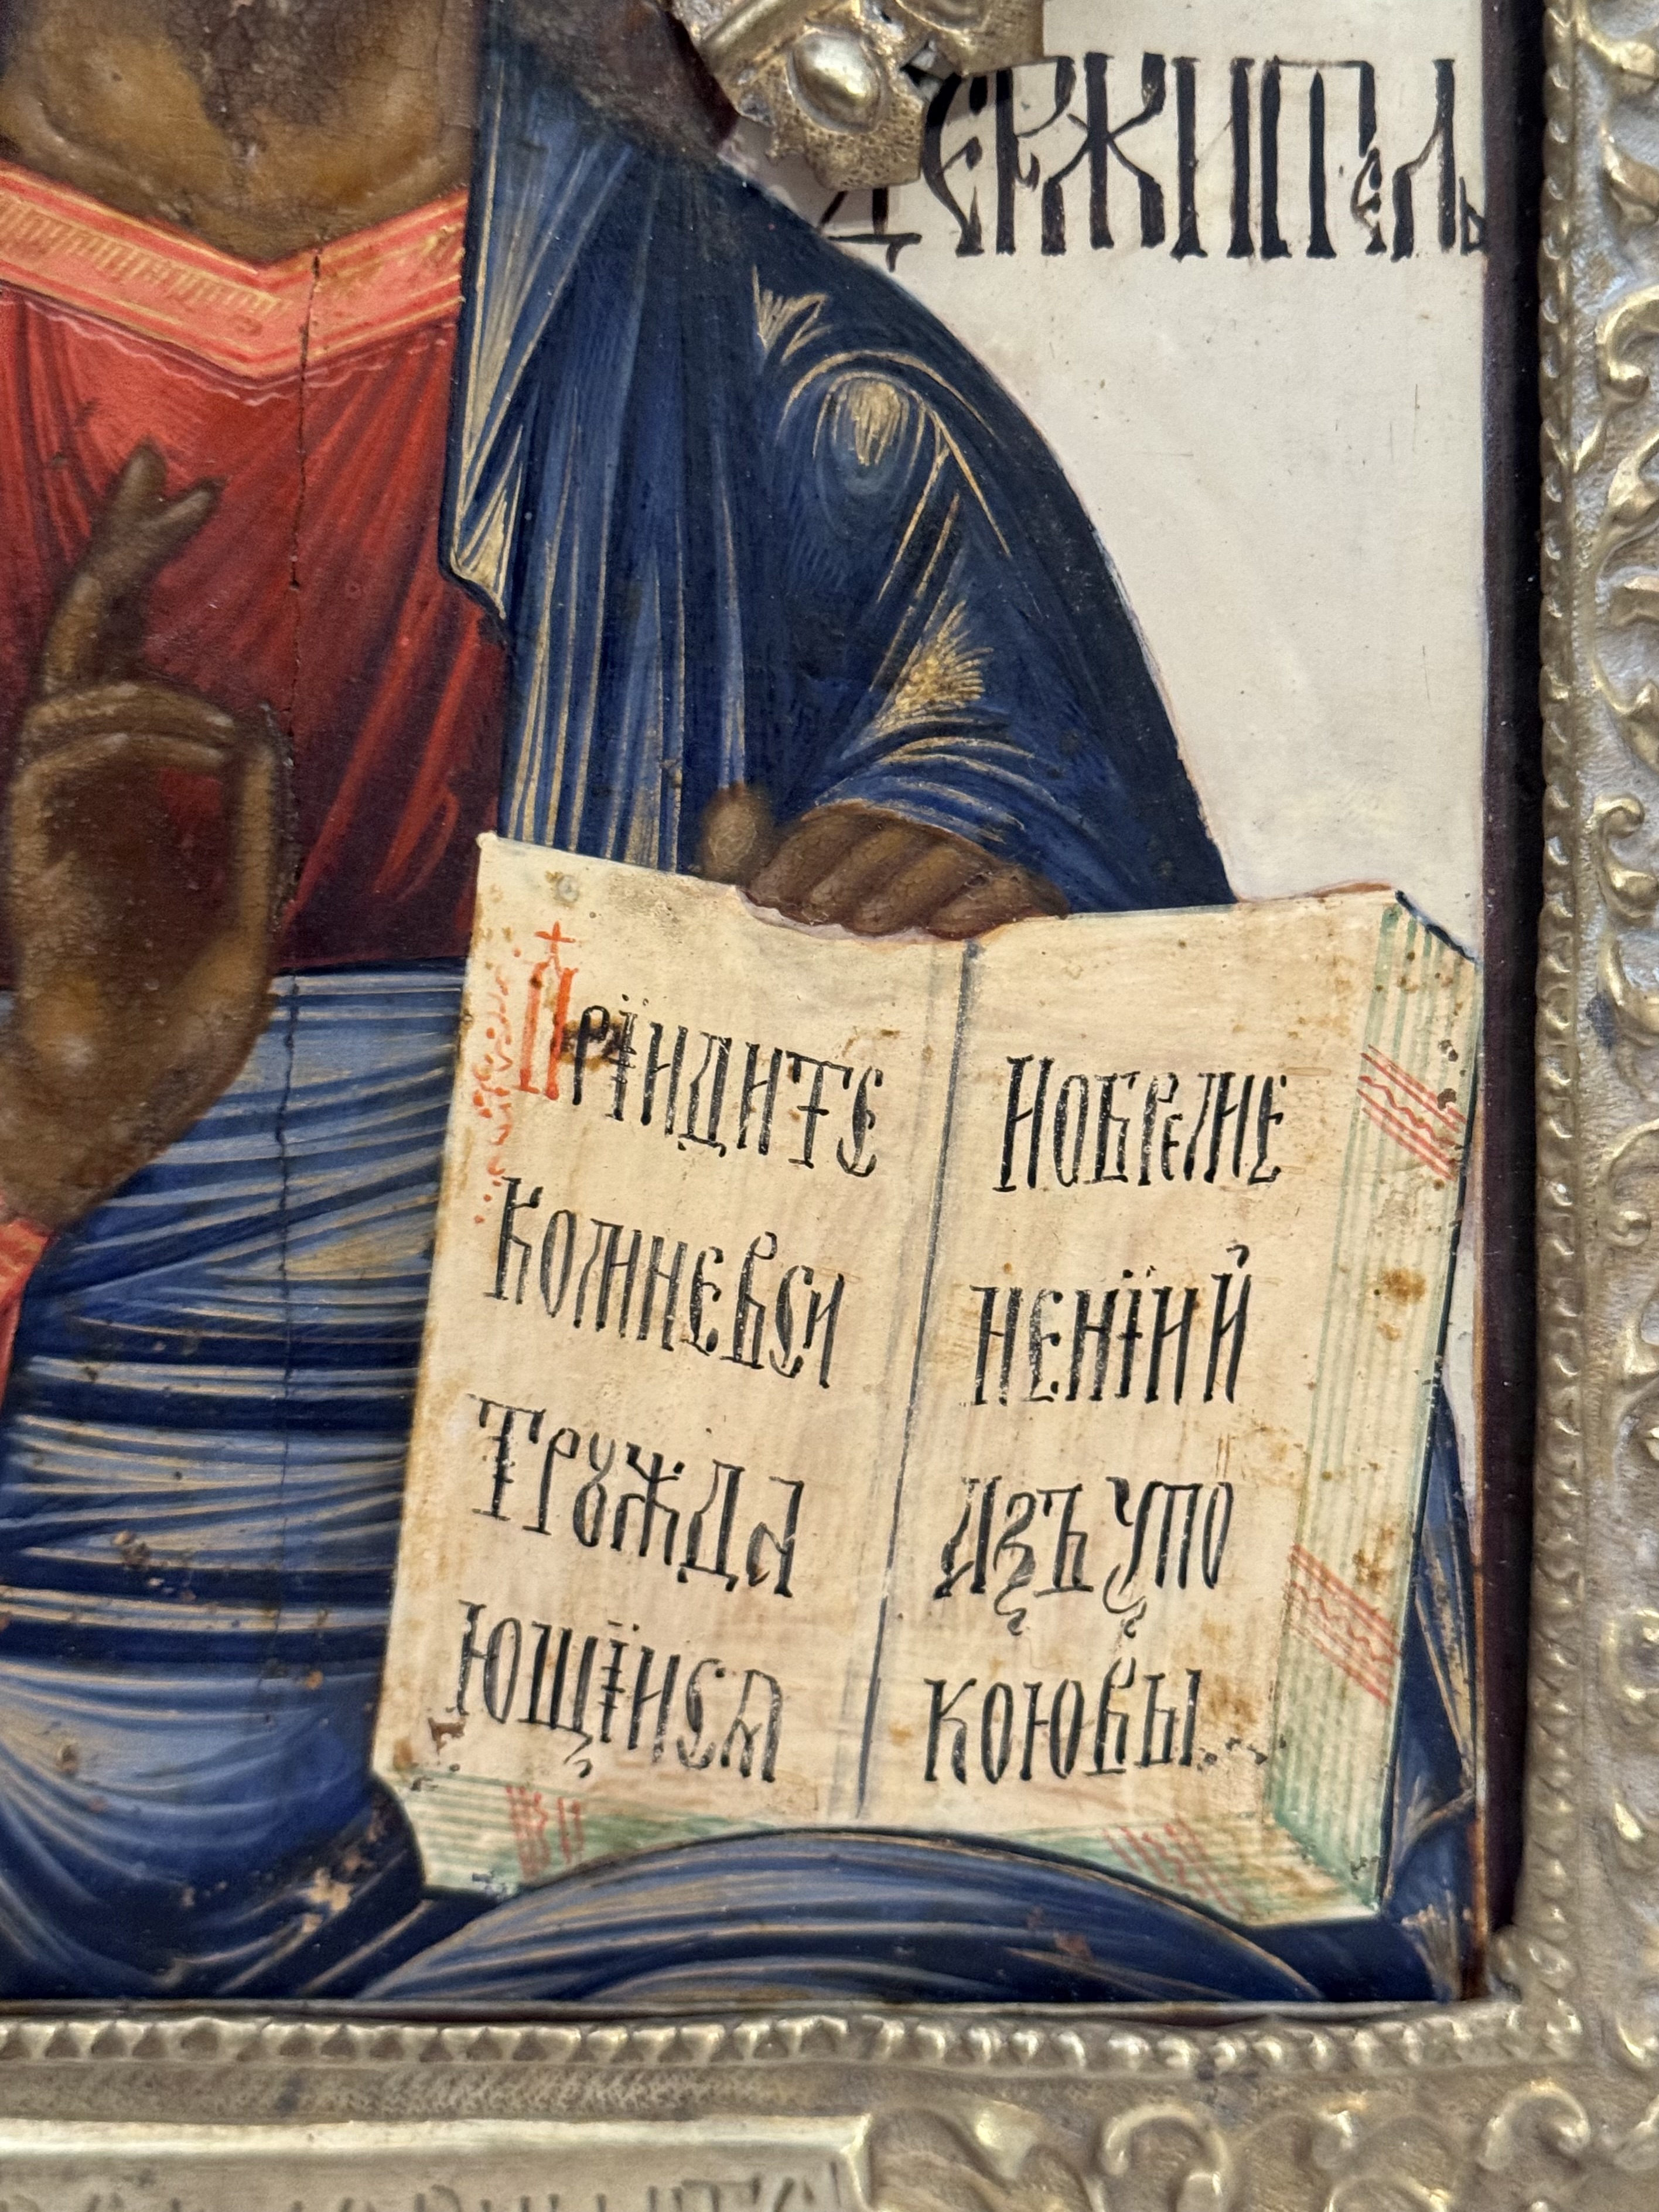 ДЕРЖИТЕЛЬ
Прїидите
Комневси
Трꙋжда
ющїися
Иобреме
ненїий
Азъ упо
коювы